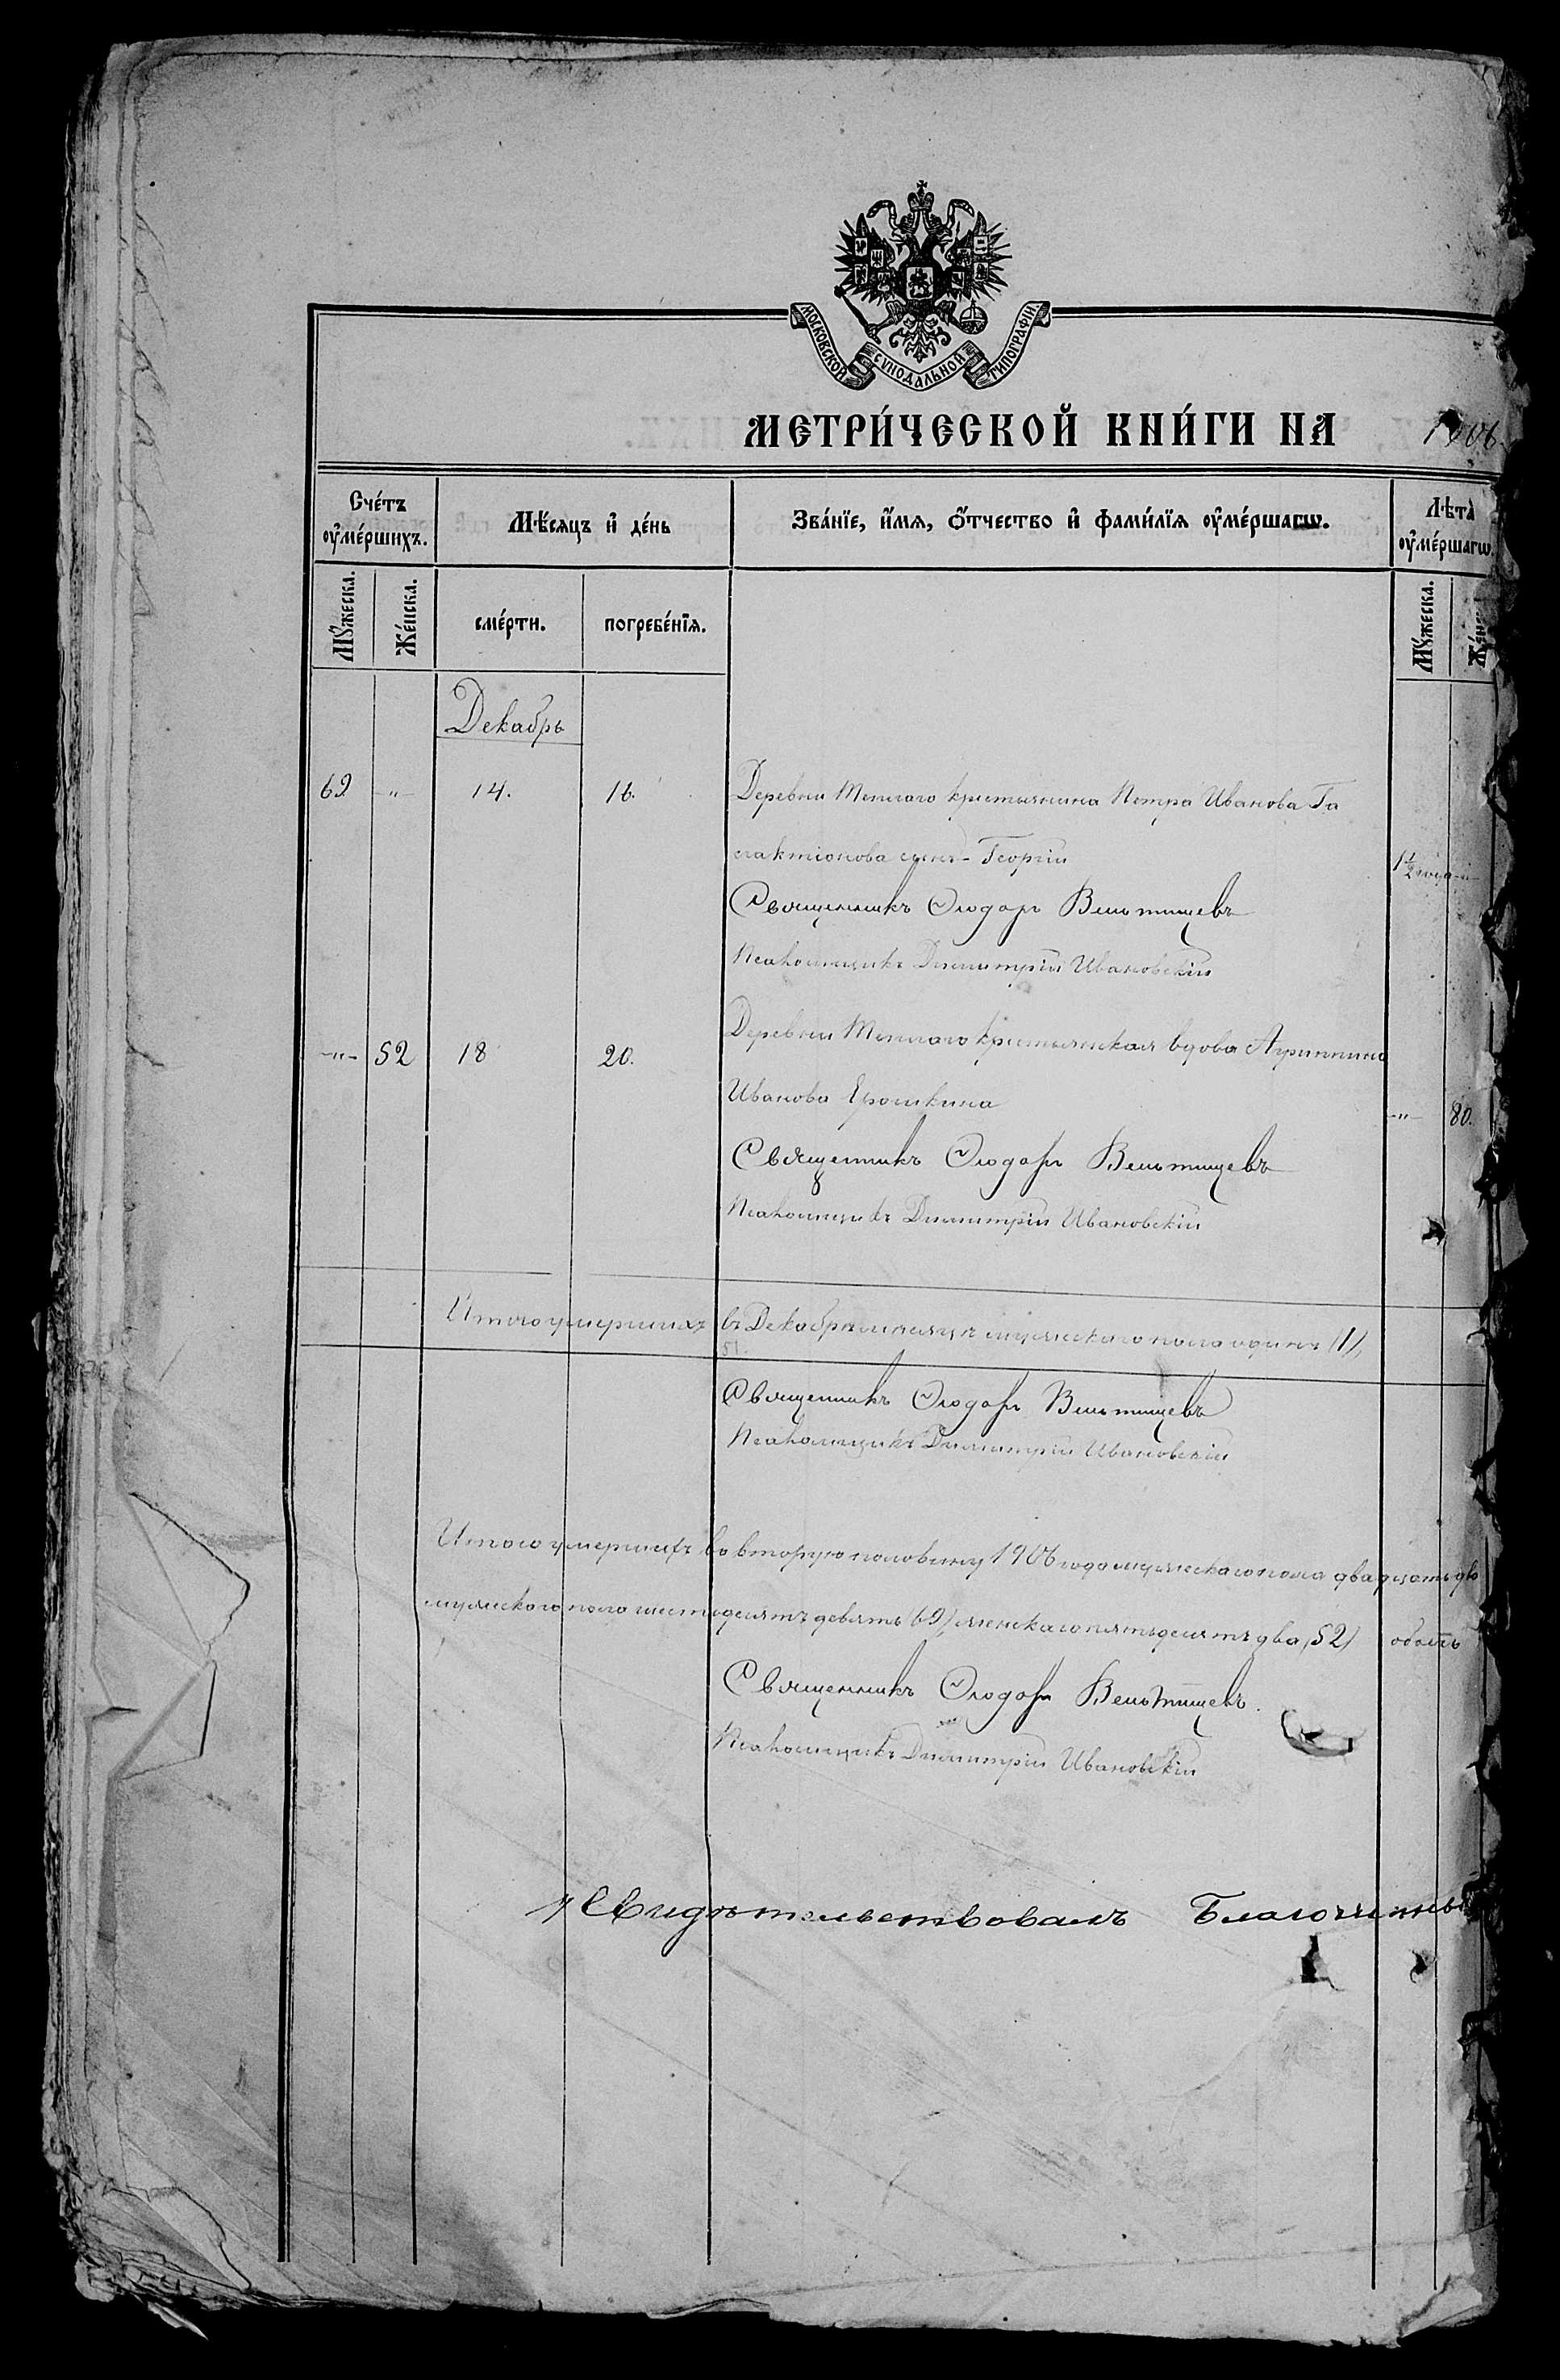 МОСКОВСКОЙ СУНОДАЛЬНОЙ ТИПОГРАФІИ
МЕТРИ́ЧЕСКОЙ КНИ́ГИ НА 1906
Сче́тъ оу҆ме́ршихъ.
Мѣ́сяцъ и҆ де́нь
Зва́нїе, и҆́мѧ, ѻ҆́тчество и҆ фами́лїѧ оу҆ме́ршагѡ.
Лѣта̀ оу҆ме́ршагѡ.
Му́жеска. Же́нска. сме́рти. погребе́нїѧ. Му́жеска.
Декабрь
69 -"- 14. 16. Деревни Теплаго крестьянина Петра Иванова Га
лактіонова сынъ - Георгій 1½ года -"-
Священникъ Ѳеодоръ Вельтищевъ
Псаломщикъ Димитрій Ивановскій
-"- 52 18 20. Деревни Теплаго крестьянская вдова Агриппина
Иванова Ерошкина -"- 80.
Священникъ Ѳеодоръ Вельтищевъ
Псаломщикъ Димитрій Ивановскій
Итого умершихъ въ Декабрѣ мѣсяцѣ мужескаго пола одинъ (1),
Священникъ Ѳеодоръ Вельтищевъ
Псаломщикъ Димитрій Ивановскій
Итого умершихъ во вторую половину 1906 года мужескаго пола двадцать дв
мужескаго пола шестьдесятъ девять (69), женскаго пятьдесятъ два (52) обоего
Священникъ Ѳеодоръ Вельтищевъ.
Псаломщикъ Димитрій Ивановскій
Свидѣтельствовалъ Благочинный